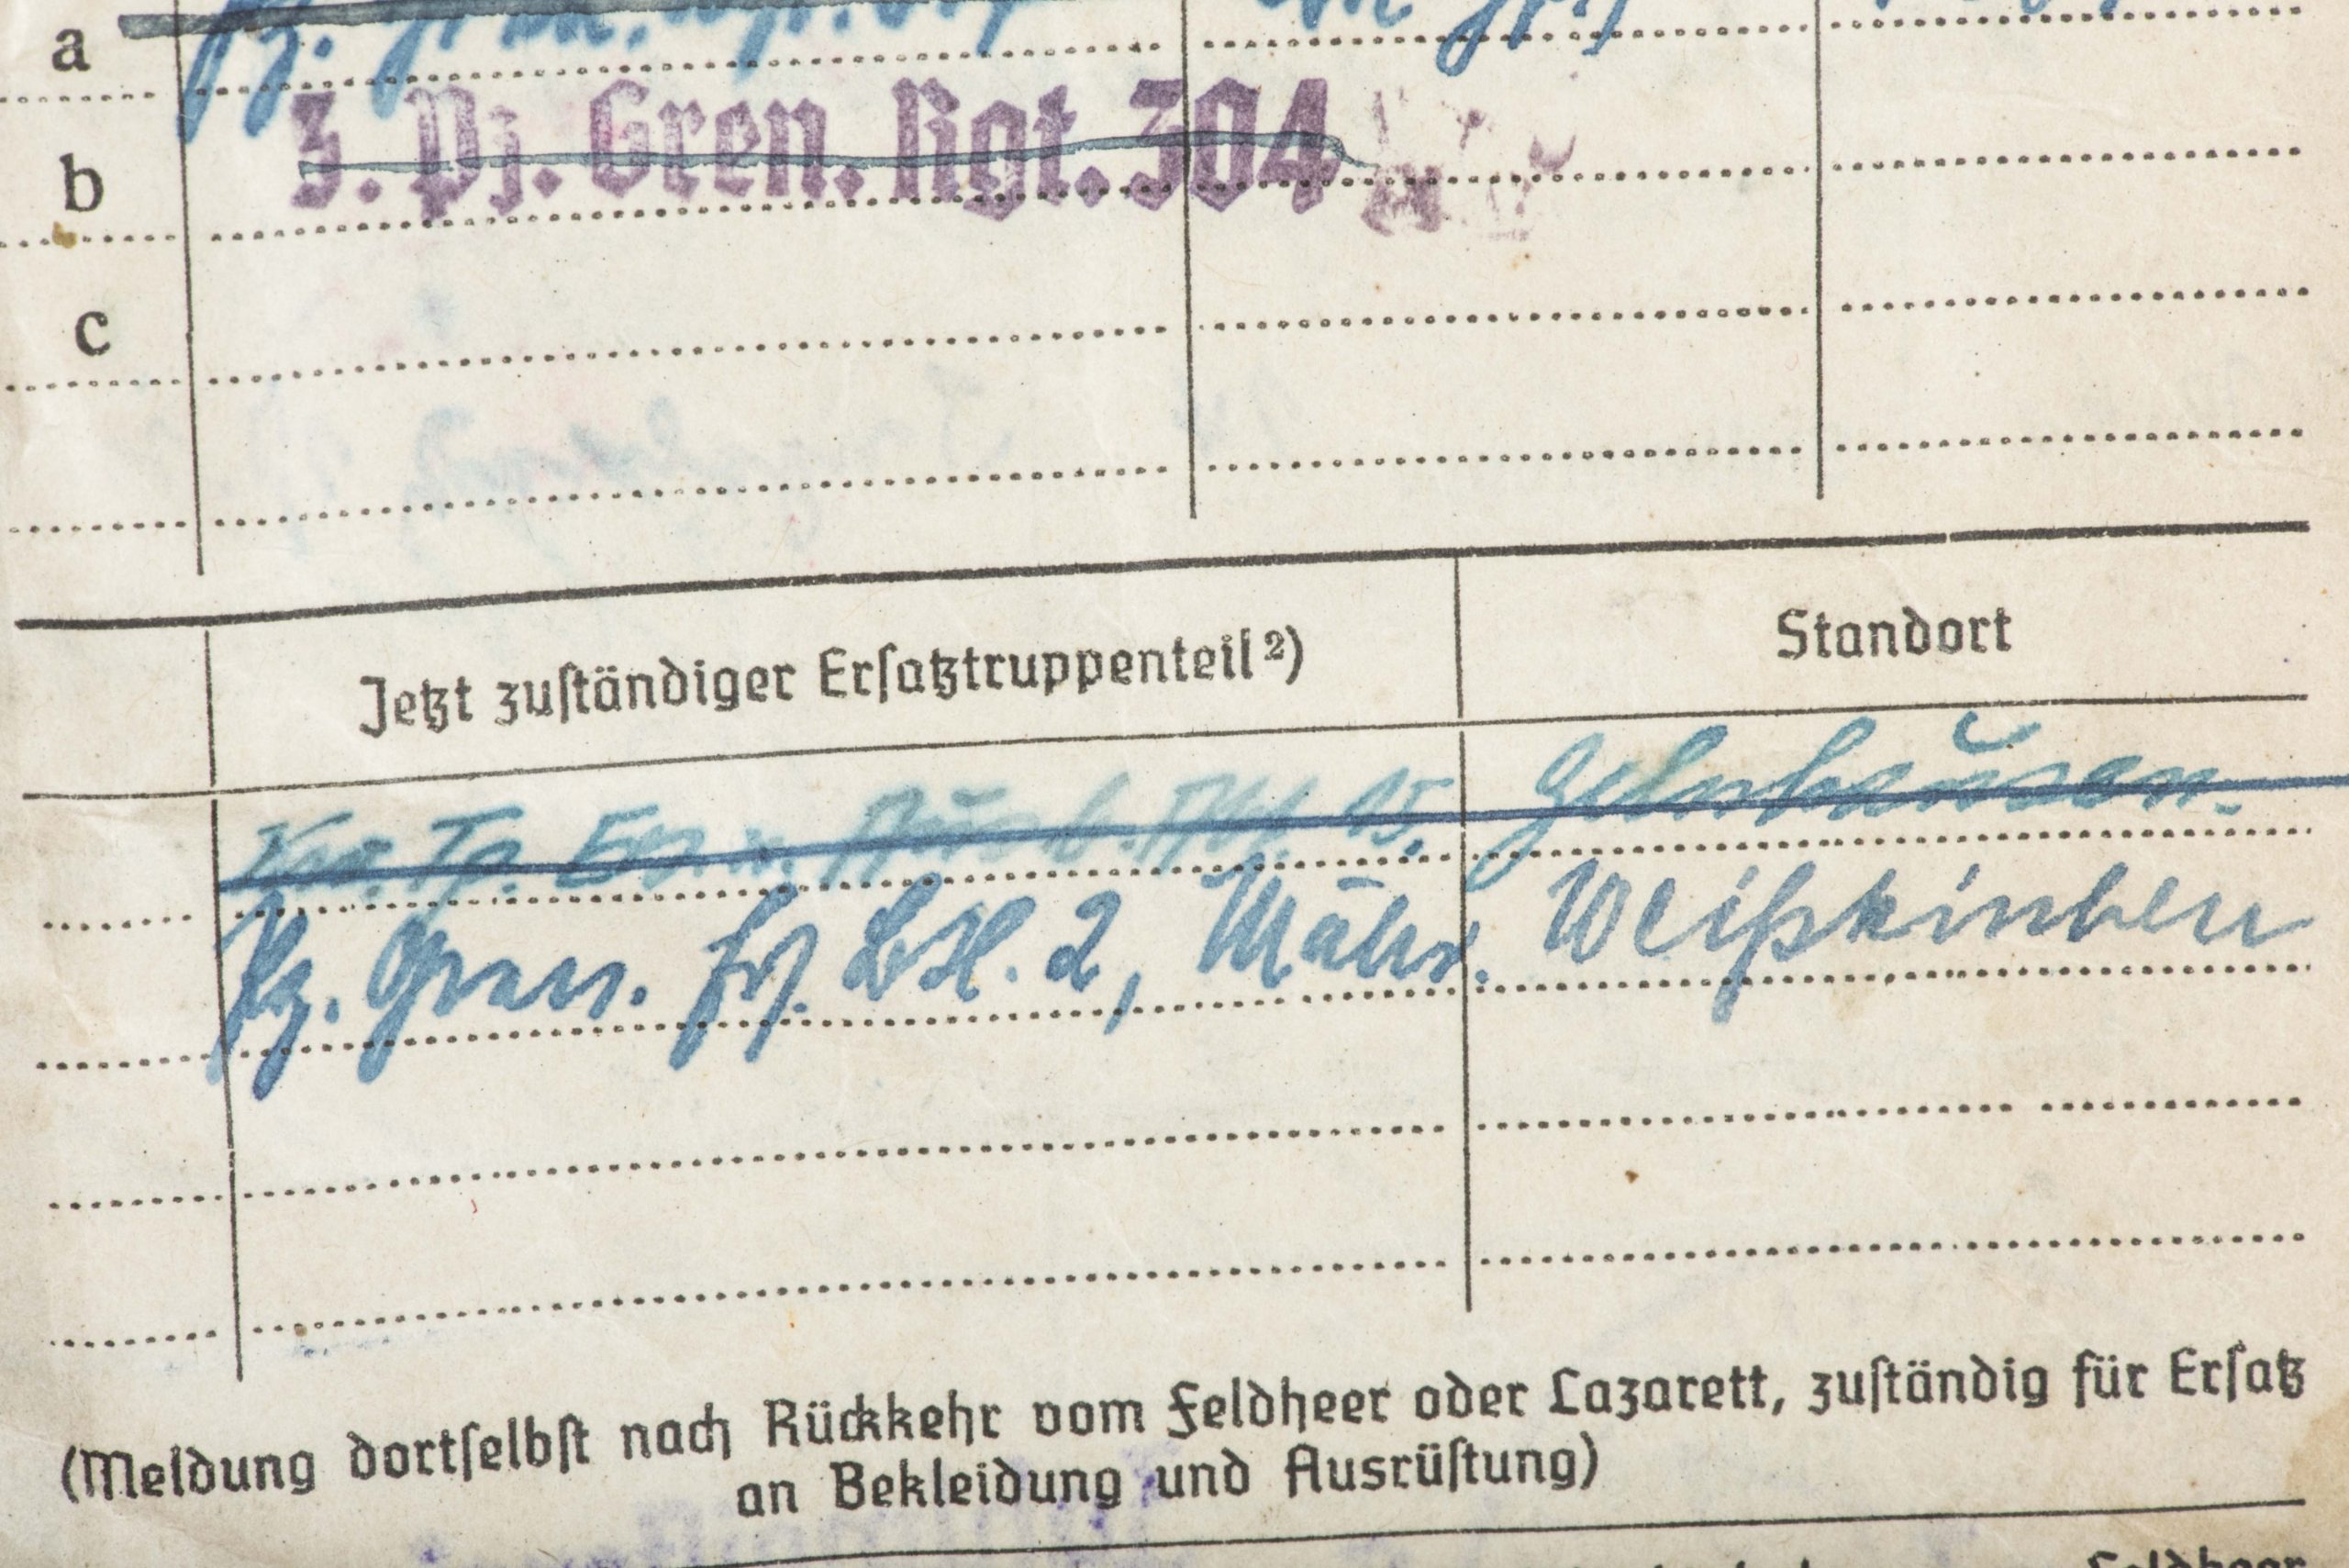 a
b 3. Pz. Gren. Rgt. 304
c
Jetzt zuständiger Ersatztruppenteil ²) Standort
Kw. Tp. Ers. u. Ausb. Abt. 15, Gelnhausen.
Pz. Gren. Ers. Btl. 2, Mähr. Weißkirchen
(Meldung dortselbst nach Rückkehr vom Feldheer oder Lazarett, zuständig für Ersatz
an Bekleidung und Ausrüstung)
Feldheer